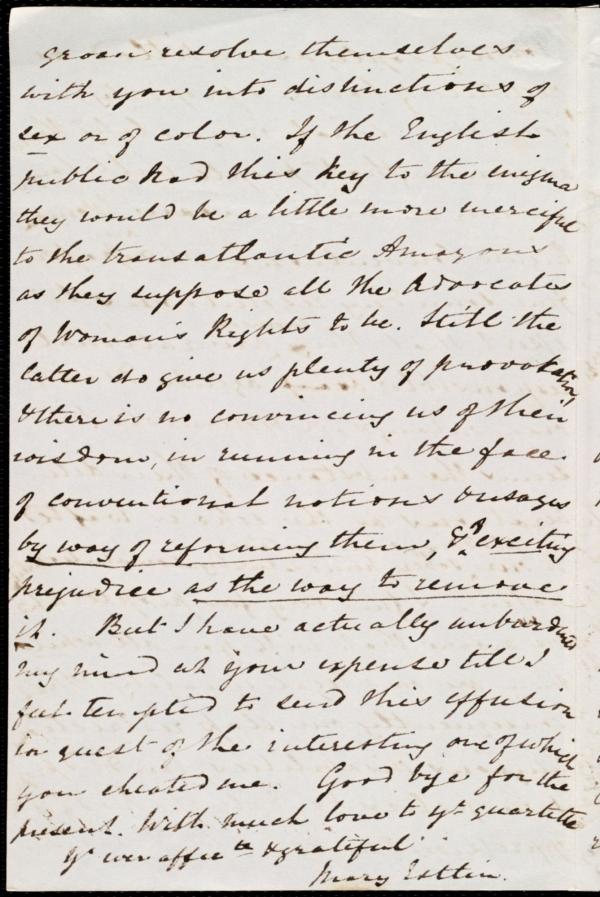 groan resolve themselves
with you into distinctions of
sex or of color. If the English
public had this key to the enigma
they would be a little more merciful
to the transatlantic Amazons
as they suppose all the Advocates
of Woman's Rights to be. Still the
latter do give us plenty of provokation,
& there is no convincing us of their
wisdom, in running in the face
of conventional notions & usages
by way of reforming them, & exciting
prejudice as the way to remove
it. But I have actually unburdened
my mind at your expense till I
feel tempted to send this effusion
in quest of the interesting one of which
you cheated me. Good bye for the
present. With much love to yr. quartette
Yr. ever affecte. & grateful
Mary Estlin.